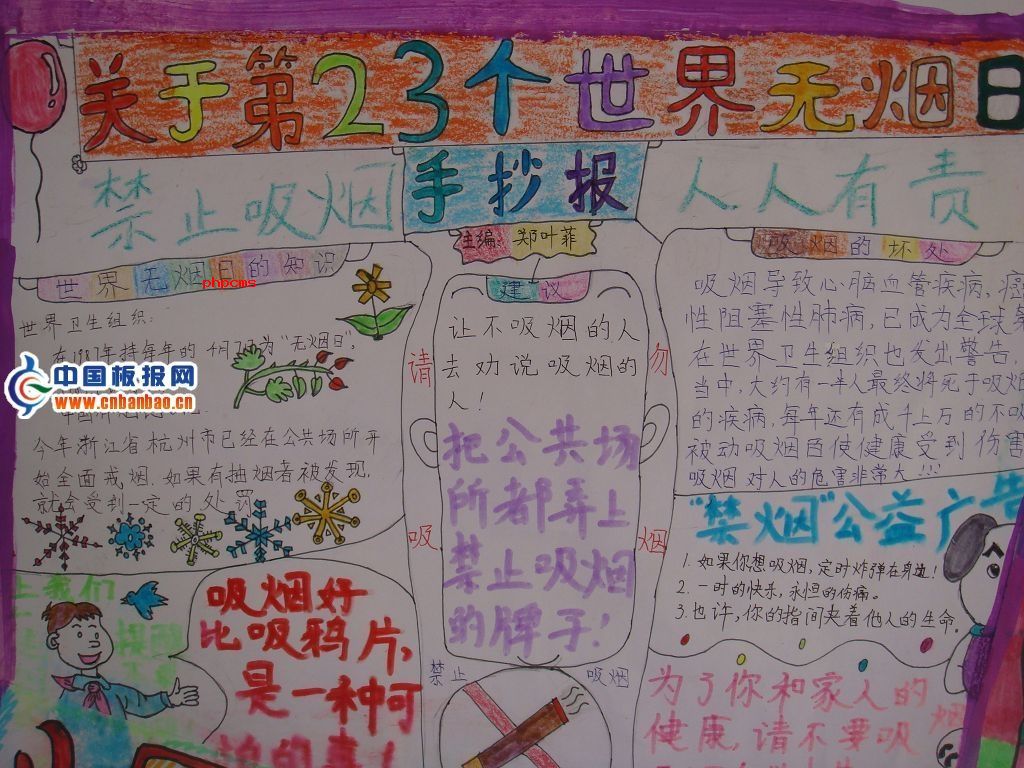 关于第23个世界无烟日
手抄报
禁止吸烟
人人有责
主编:郑叶菲
世界无烟日的知识
phpcms
世界卫生组织:
在1987年将每年的4月7日为"无烟日",
中国板报网
www.cnbanbao.cn
今年浙江省杭州市已经在公共场所开
始全面戒烟.如果有抽烟者被发现,
就会受到一定的处罚
建议
让不吸烟的人
去劝说吸烟的
人!
把公共场
所都弄上
禁止吸烟
的牌子!
请
勿
吸
烟
禁止
吸烟
吸烟的坏处
吸烟导致心脑血管疾病,癌
性阻塞性肺病,已成为全球
在世界卫生组织也发出警告,
当中,大约有一半人最终将死于吸烟
的疾病,每年还有成千上万的不吸
被动吸烟而使健康受到伤害
吸烟对人的危害非常大!!!
"禁烟"公益广告
1.如果你想吸烟,定时炸弹在身边!
2.一时的快乐,永恒的伤痛。
3.也许,你的指间夹着他人的生命。
让我们
吸烟好
比吸鸦片,
是一种可
怕的事!
为了你和家人的
健康,请不要吸烟